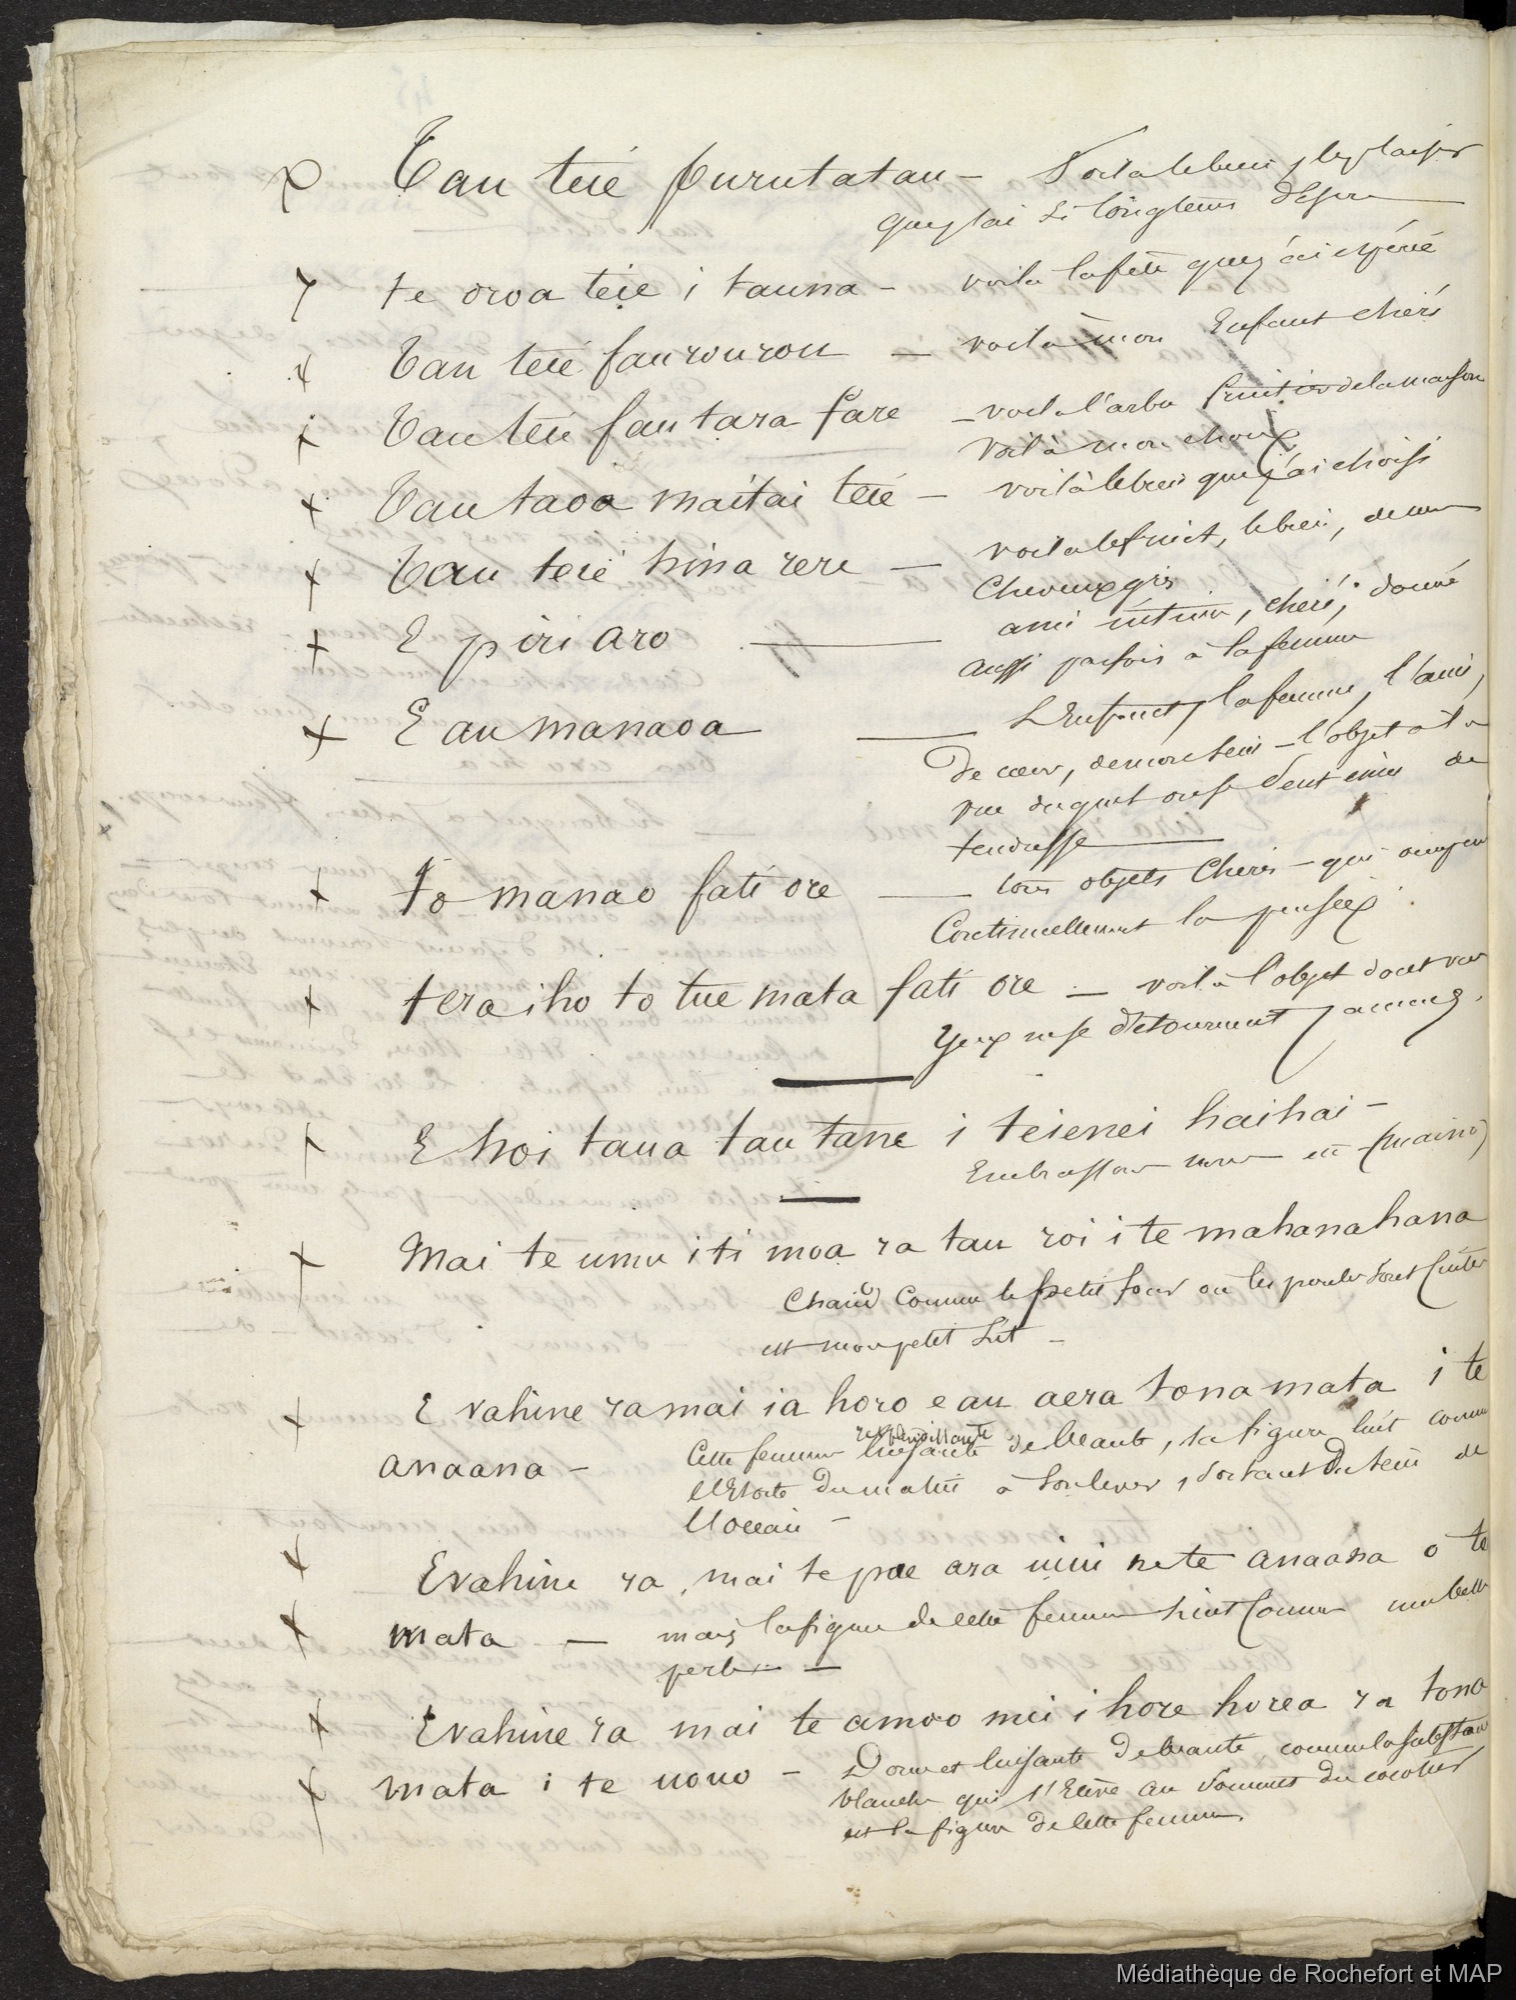 Tau teié purutatau — Voila le bien, le plaisir
que j'ai si longtems désiré
te oroa teie i tauna — voila la fête que j'ai espéré
Tau teié faurourou — voilà mon Enfant chéri
Tau teié fautara fare — voila l'arbre fruitier de la maison
Voilà mon choux
Tau taoa maitai teié — voilà le bien que j'ai choisi
Tau teié hina rere — voila le fruit, le bien, de mes
Cheveux gris
E piri aro — ami intime, chéri, donné
aussi parfois à la femme
E au manaoa — L'Enfant, la femme, l'ami,
de cœur, de mon sein — l'objet à la
vue duquel on se sent ému de
tendresse
to manao fati ore — tous objets Cheris — qui occupent
Continuellement la pensée
tera iho to tue mata fati ore — voilà l'objet dont vos
yeux ne se détournent jamais.
E hoi taua tau tane i teienei haihai —
Embrassons nous en
Mai te umu iti moa ra tau roi i te mahanahana
Chaud Comme le petit four ou les poules sont cuites
est mon petit Lit —
E vahine ra mai ia horo e au aera tona mata i te
resplendissante
anaana — Cette femme luisante de beauté, sa figure luit comme
l'Etoile du matin à son lever, sortant du sein de
l'Ocean —
E vahine ra, mai te poe ara uiui nete anaana o te
mata — mais la figure de cette femme luit Comme une belle
perle —
E vahine ra mai te amoo mei i hore horea ra tona
mata i te uouo — Douce et luisante de beauté, comme la substance
blanche qui s'Elève au sommet du cocotier
est la figure de cette femme.
Médiathèque de Rochefort et MAP